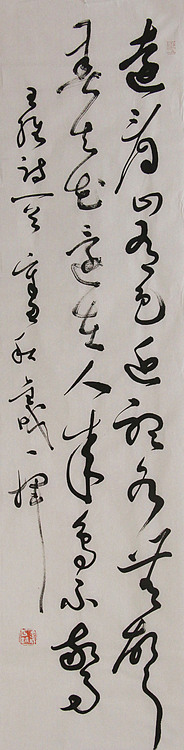 遠看山有色近聽水無聲
春去花還在人來鳥不驚
王維詩一首 秋